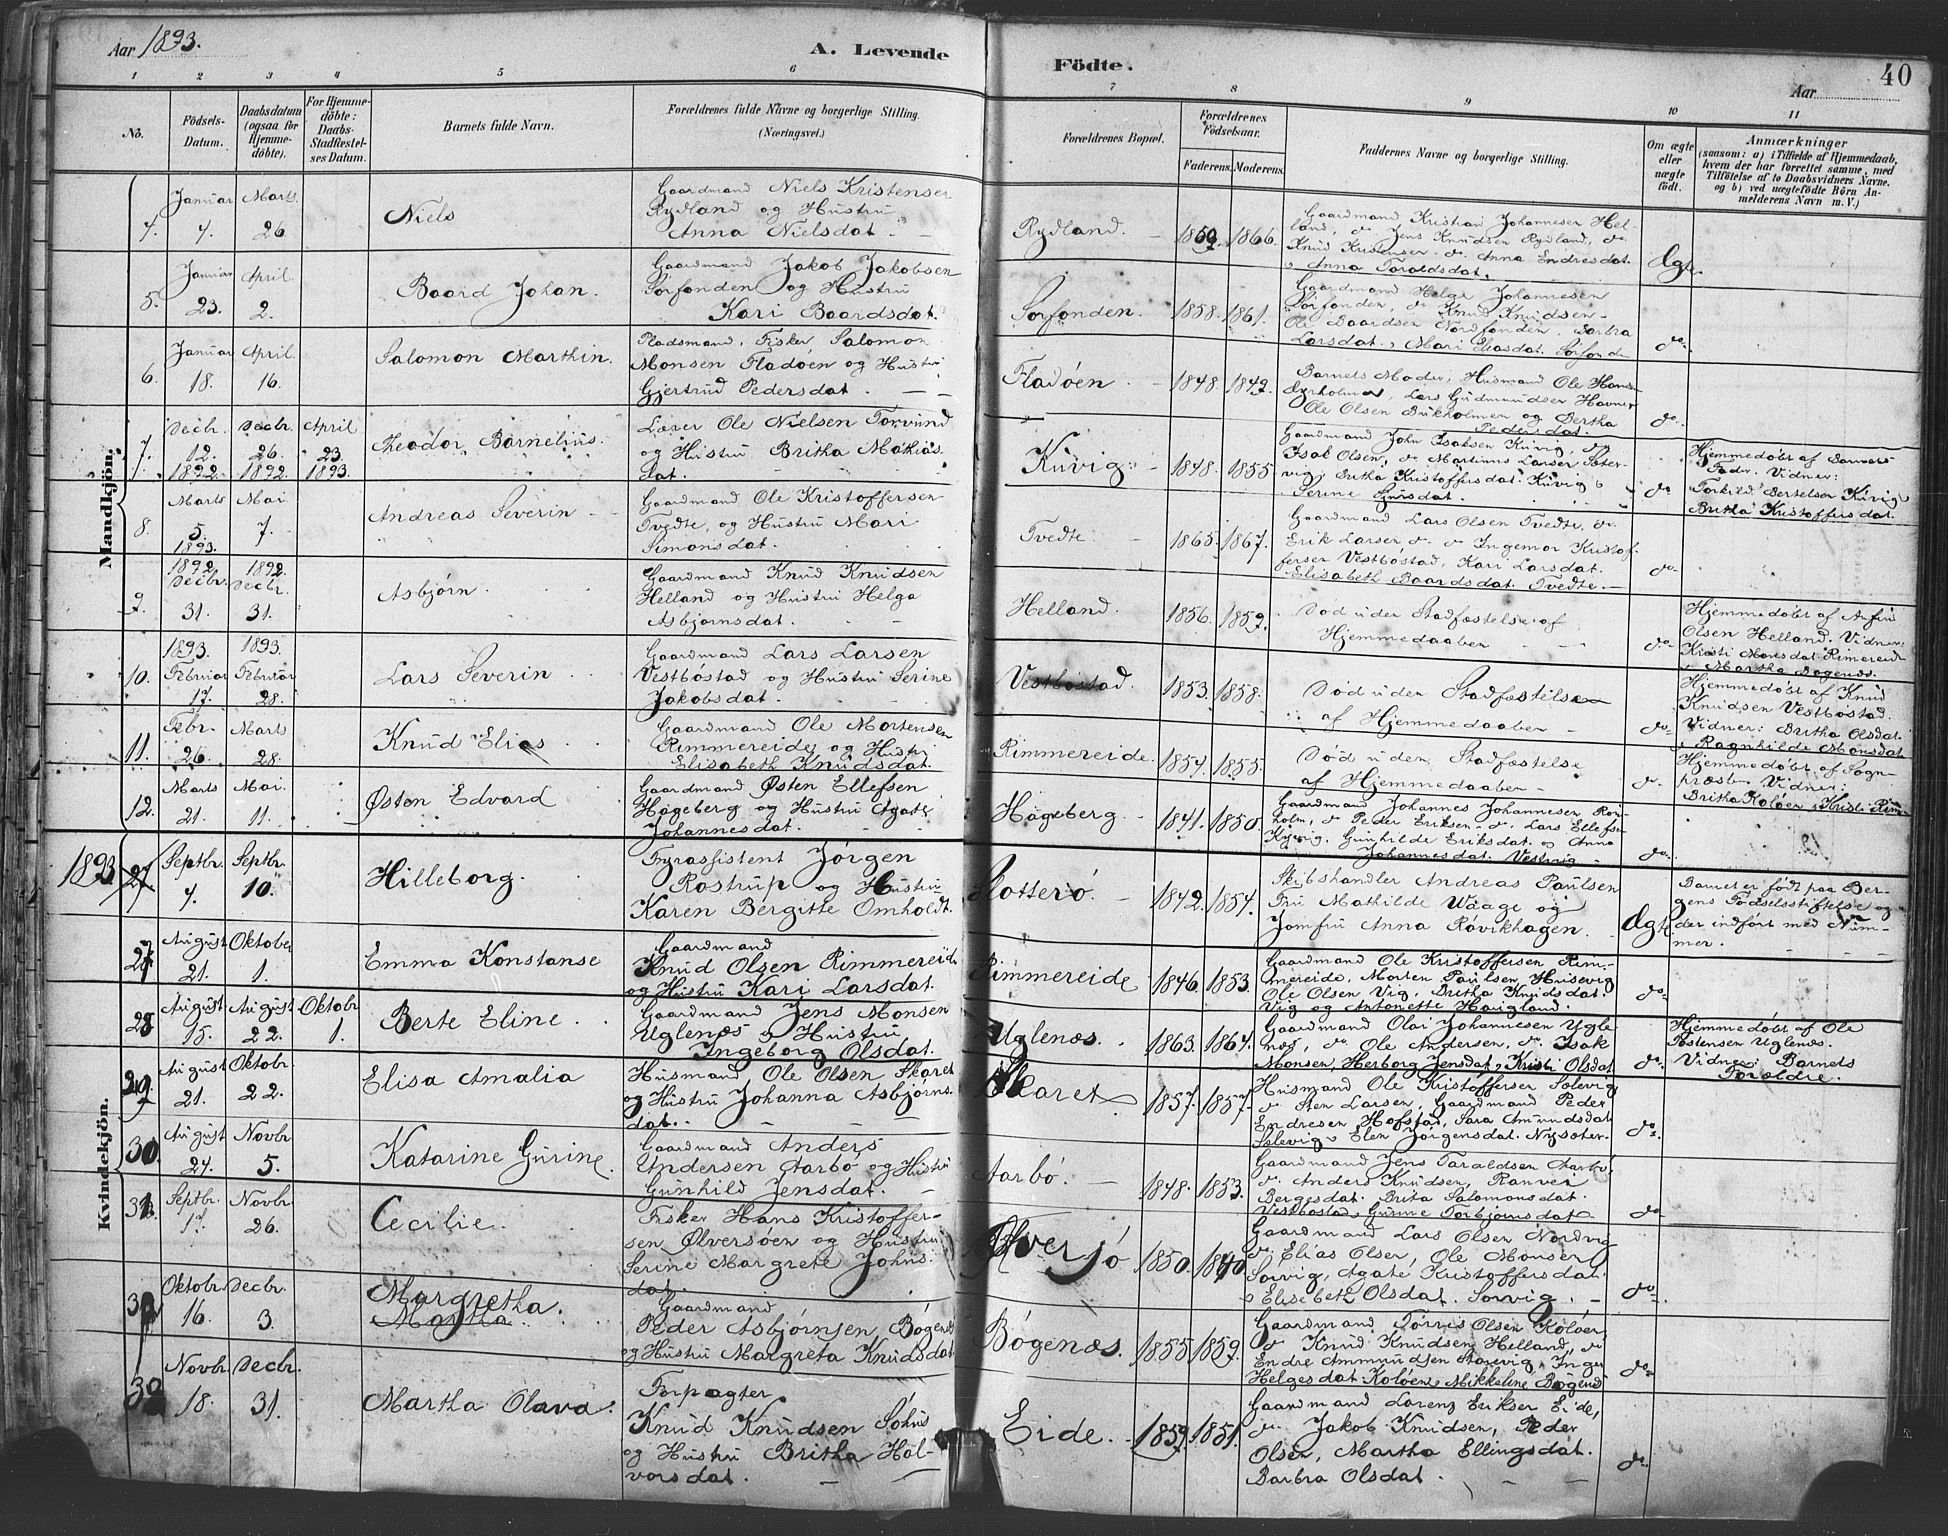 Aar 1893.
A. Levende
Födte.
Aar
40
1 2 3 4 5 6 7 8 9 10 11
No.
Födsels-Datum.
Daabsdatum (ogsaa for Hjemme-döbte).
For Hjemme-döbte: Daabs-Stadfæstel-ses Datum.
Barnets fulde Navn.
Forældrenes fulde Navne og borgerlige Stilling.
(Næringsvei.)
Forældrenes Bopæl.
Forældrenes Födselsaar.
Faderens. Moderens.
Faddernes Navne og borgerlige Stilling.
Om ægte eller uægte födt.
Anmærkninger
(saasom: a) i Tilfælde af Hjemmedaab,
hvem der har forrettet samme, med
Tilföielse af to Daabsvidners Navne.
og b) ved uægtefödte Börn An-
melderens Navn m. V.)
Mandkjön.
4. Januar 4. Marts 26
Niels
Gaardmand Niels Kristensen
Rydland og Hustru
Anna Nielsdat.
Rydland. 1859 1866.
Gaardmand Kristian Johannesen Hel-
land, do Jens Knudsen Rydland, do
Knud Kristensen do Anna Endresdat.
Anna Taraldsdat.
Ægte.
5. Januar 23. April 2.
Baard Johan.
Gaardmand Jakob Jakobsen
Sørfonden og Hustru
Kari Baardsdat.
Sørfonden. 1858. 1861.
Gaardmand Helge Johannesen
Sørfonden, do Knud Knudsen
Ole Baardsen Nordfonden, Barbra
Larsdat, Mari Eliasdat. Sørfond
do
6. Januar 18. April 16.
Salomon Marthin.
Pladsmand, Fisker Salomon
Monsen Fladøen og Hustru
Gjertrud Pedersdat.
Fladøen. 1848. 1849.
Barnets Moder, Husmand Ole Hans
Lars Gudmundsen Havner
Ole Olsen og Bertha
Pedersdat.
do
7. Decbr. 12. 1892. Decbr. 26. 1892 April 23. 1893.
Theodor Barnelius.
Lærer Ole Nielsen Torvund
og Hustru Britha Mathias
dat.
Kuvig. 1848. 1855
Gaardmand John Isaksen Kuvig, do
Isak Olsen, do Martinus Larsen Sæter-
vig, Britha Kristoffersdat. Kuvig
Serine
do
Hjemmedøbt af Barnets
Fader. Vidner:
Torkild Bertelsen Kuvig
Britha Kristoffersdat.
8. Marts 5. 1893. Mai 7.
Andreas Severin
Gaardmand Ole Kristoffersen
Tvedte, og Hustru Mari
Simonsdat.
Tvedte. 1865. 1867.
Gaardmand Lars Olsen Tvedte, do
Erik Larsen do Ingemor Kristof-
fersen Vestbøstad, Kari Larsdat.
Elisabeth Baardsdat Tvedte.
do
9. 1892. Decbr. 31. 1892. Decbr. 31.
Asbjørn.
Gaardmand Knud Knudsen
Helland og Hustru Helga
Asbjørnsdat.
Helland. 1856. 1859.
Død uden Stadfæstelse af
Hjemmedaaben
do
Hjemmedøbt af Arfin
Olsen Helland. Vidner:
Kristi Monsdat Rimereid
Martha Bøgenæs.
10. 1893. Februar 17. 1893. Februar 28.
Lars Severin
Gaardmand Lars Larsen
Vestbøstad og Hustru Serine
Jakobsdat.
Vestbøstad. 1853. 1858.
Død uden Stadfæstelsen
af Hjemmedaaben
do
Hjemmedøbt af Knud
Knudsen Vestbøstad.
Vidner: Britha Olsdat.
Ragnhilde Monsdat.
11. Febr. 26. Marts 28.
Knud Elias
Gaardmand Ole Mortensen
Rimmereide og Hustru
Elisabeth Knudsdat.
Rimmereide. 1854. 1855.
Død uden Stadfæstelse
af Hjemmedaaben
do
Hjemmedøbt af Sogn-
præst. Vidner:
Britha Koløen, Kristi Rim
12. Marts 21. Mai 11.
Østen Edvard
Gaardmand Østen Ellefsen
Hageberg og Hustru Agate
Johannesdat.
Hageberg. 1841. 1850.
Gaardmand Johannes Johannesen
do Peder Eriksen do Lars Ellefsen
Gunhilde Eriksdat. og Anna
Johannesdat Vestvig
do
Kvindekjön.
1893. 27 Septbr. 4. Septbr. 10.
Hilleborg.
Fyrassistent Jørgen
Rostrup og Hustru
Karen Bergitte Omholdt.
Slotterø. 1842. 1854.
Skibshandler Andreas Paulsen
Fru Mathilde Waage og
Jomfru Anna Røvikhagen.
Ægte
Barnet er født paa Ber-
gens Fødselsstiftelse og
der indført med Num-
mer.
August 21. Oktober 1.
Emma Konstanse
Gaardmand
Knud Olsen Rimmereide
og Hustru Kari Larsdat.
Rimmereide 1846. 1853.
Gaardmand Ole Kristoffersen Rim-
mereide, Morten Paulsen Husevig
Ole Olsen Vig, Britha Knudsdat.
Vig og Antonette Haugland.
do
28 August 15. August 22. Oktobr 1.
Berte Eline.
Gaardmand Jens Monsen
Uglenæs og Hustru
Ingeborg Olsdat.
Uglenæs. 1863. 1864.
Gaardmand Olai Johannesen Ugle
næs, do Ole Andersen, do Isak
Monsen, Herborg Jensdat, Kristi Olsdat
do
Hjemmedøbt af Ole
Postensen Uglenæs.
Vidner: Barnets
Forældre.
29. August 21. Oktobr 22.
Elisa Amalia
Husmand Ole Olsen Skaret
og Hustru Johanna Asbjørns
dat.
Skaret. 1857. 1857.
Husmand Ole Kristoffersen Solevig
do Sten Larsen, Gaardmand Peder
Endresen Hofsjø, Sara Amundsdat
Solevig, Elen Jørgensdat. Nysæter.
do
30. August 24. Novbr 5.
Katarine Gurine.
Gaardmand Anders
Andersen Aarbø og Hustru
Gunhild Jensdat.
Aarbø. 1848. 1853.
Gaardmand Jens Taraldsen Aarbø,
do Anders Knudsen, Ranvei
Bergesdat. Brita Salomonsdat.
Vestbøstad, Gurine Torbjørnsdat
do
31. Septbr. 17. Novbr. 26.
Cecilie.
Fisker Hans Kristoffer-
sen Ølversøen og Hustru
Serine Margrete Johns
dat.
Ølversjø 1850. 1840
Gaardmand Lars Olsen Nordvig
do Elias Olsen, Ole Monsen
Sørvig, Agate Kristoffersdat.
Elisebeth Olsdat. Sørvig.
do
Oktobr. 16. Decbr. 3.
Margretha.
Martha
Gaardmand
Peder Asbjørnsen Bøgenæs
og Hustru Margreta Knudsdat
Bøgenæs. 1855 1859.
Gaardmand Tørris Olsen Koløen,
do Knud Knudsen Helland, do
Endre Ammundsen Inger
Helgesdat Koløen, Mikkeline Bøgenæs
do
Novbr. 18. Decbr. 31.
Martha Olava.
Forpagter
Knud Knudsen
og Hustru Britha Hal-
vorsdat.
Eide. 1859. 1851.
Gaardmand Lorens Eriksen Eide,
do Jakob Knudsen, Peder
Olsen, Martha Ellingsdat.
Barbra Olsdat.
do